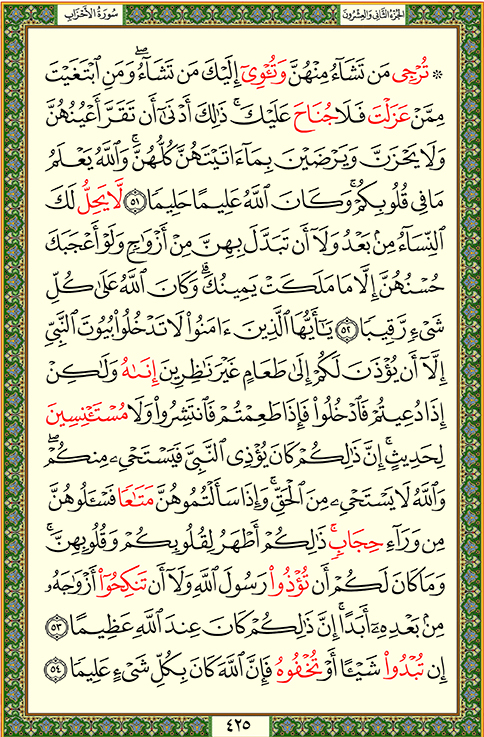 الجزء الثاني والعشرون
سورة الأحزاب
۞ تُرْجِى مَن تَشَآءُ مِنْهُنَّ وَتُـْٔوِىٓ إِلَيْكَ مَن تَشَآءُ ۖ وَمَنِ ٱبْتَغَيْتَ
مِمَّنْ عَزَلْتَ فَلَا جُنَاحَ عَلَيْكَ ۚ ذَٰلِكَ أَدْنَىٰٓ أَن تَقَرَّ أَعْيُنُهُنَّ
وَلَا يَحْزَنَّ وَيَرْضَيْنَ بِمَآ ءَاتَيْتَهُنَّ كُلُّهُنَّ ۚ وَٱللَّهُ يَعْلَمُ
مَا فِى قُلُوبِكُمْ ۚ وَكَانَ ٱللَّهُ عَلِيمًا حَلِيمًا ٥١ لَّا يَحِلُّ لَكَ
ٱلنِّسَآءُ مِنۢ بَعْدُ وَلَآ أَن تَبَدَّلَ بِهِنَّ مِنْ أَزْوَٰجٍ وَلَوْ أَعْجَبَكَ
حُسْنُهُنَّ إِلَّا مَا مَلَكَتْ يَمِينُكَ ۗ وَكَانَ ٱللَّهُ عَلَىٰ كُلِّ
شَىْءٍ رَّقِيبًا ٥٢ يَـٰٓأَيُّهَا ٱلَّذِينَ ءَامَنُوا۟ لَا تَدْخُلُوا۟ بُيُوتَ ٱلنَّبِىِّ
إِلَّآ أَن يُؤْذَنَ لَكُمْ إِلَىٰ طَعَامٍ غَيْرَ نَـٰظِرِينَ إِنَىٰهُ وَلَـٰكِنْ
إِذَا دُعِيتُمْ فَٱدْخُلُوا۟ فَإِذَا طَعِمْتُمْ فَٱنتَشِرُوا۟ وَلَا مُسْتَـْٔنِسِينَ
لِحَدِيثٍ ۚ إِنَّ ذَٰلِكُمْ كَانَ يُؤْذِى ٱلنَّبِىَّ فَيَسْتَحْىِۦ مِنكُمْ ۖ
وَٱللَّهُ لَا يَسْتَحْىِۦ مِنَ ٱلْحَقِّ ۚ وَإِذَا سَأَلْتُمُوهُنَّ مَتَـٰعًا فَسْـَٔلُوهُنَّ
مِن وَرَآءِ حِجَابٍ ۚ ذَٰلِكُمْ أَطْهَرُ لِقُلُوبِكُمْ وَقُلُوبِهِنَّ ۚ
وَمَا كَانَ لَكُمْ أَن تُؤْذُوا۟ رَسُولَ ٱللَّهِ وَلَآ أَن تَنكِحُوٓا۟ أَزْوَٰجَهُۥ
مِنۢ بَعْدِهِۦٓ أَبَدًا ۚ إِنَّ ذَٰلِكُمْ كَانَ عِندَ ٱللَّهِ عَظِيمًا ٥٣
إِن تُبْدُوا۟ شَيْـًٔا أَوْ تُخْفُوهُ فَإِنَّ ٱللَّهَ كَانَ بِكُلِّ شَىْءٍ عَلِيمًا ٥٤
٤٢٥